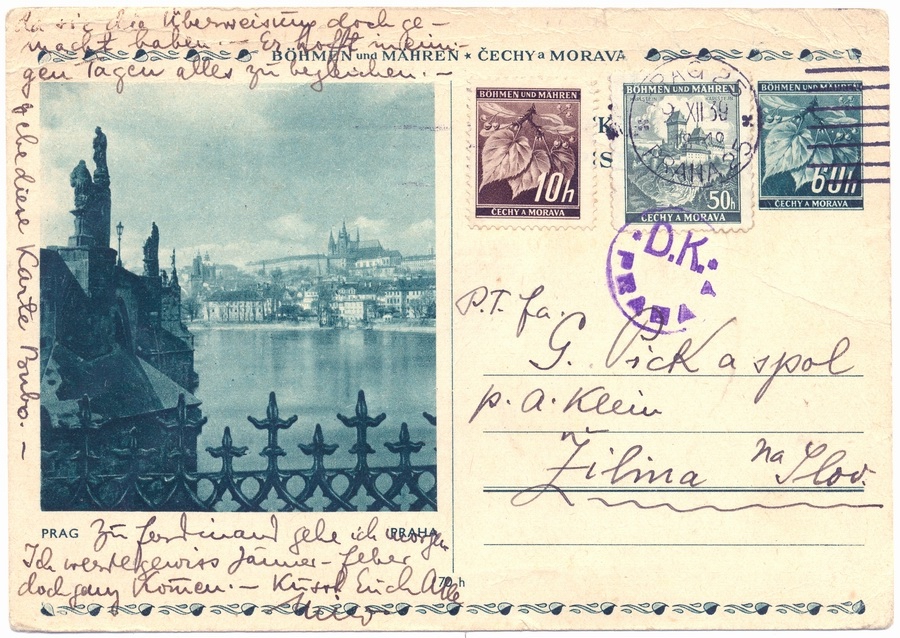 da sie die Überweisung doch ge-
macht haben. – Er hofft in eini-
gen Tagen alles zu begleichen. –
BÖHMEN und MÄHREN ★ ČECHY a MORAVA
gebe diese Karte Bubo. –
BÖHMEN UND MÄHREN
10h
ČECHY A MORAVA
BÖHMEN UND MÄHREN
50h
ČECHY A MORAVA
BÖHMEN UND MÄHREN
60h
ČECHY A MORAVA
PRAG 25
9 XII 39
PRAHA 25
D.K.
PRAHA
P.T. fa.
G. Pick a spol
p. A. Klein
Žilina na Slov.
PRAG
PRAHA
Zu Ferdinand gehe ich morgen
Ich werde gewiss Jänner-Feber
doch ganz kommen. – Küsst Euch Alle
70 h